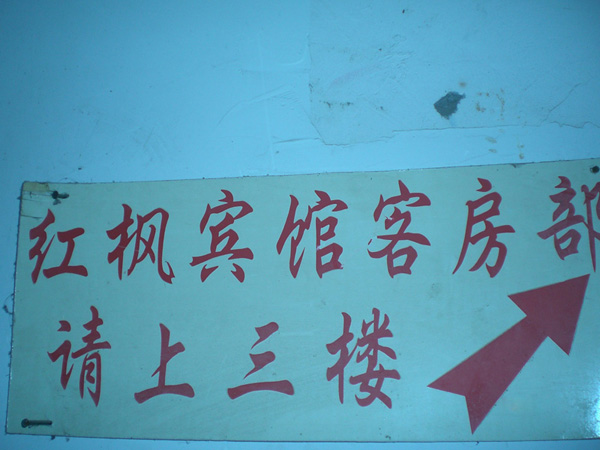 红枫宾馆客房部
请上三楼